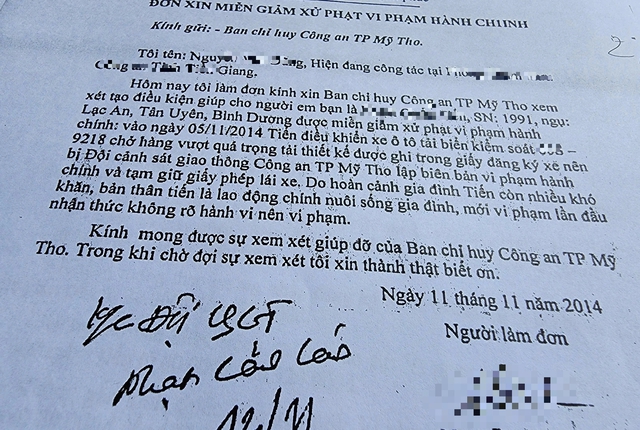 ĐƠN XIN MIỄN GIẢM XỬ PHẠT VI PHẠM HÀNH CHIINH
Kính gửi: - Ban chỉ huy Công an TP Mỹ Tho.
Tôi tên: Hiện đang công tác tại
Công an Tiền Giang.
Hôm nay tôi làm đơn kính xin Ban chỉ huy Công an TP Mỹ Tho xem
xét tạo điều kiện giúp cho người em bạn là SN: 1991, ngụ:
Lạc An, Tân Uyên, Bình Dương được miễn giảm xử phạt vi phạm hành
chính: vào ngày 05/11/2014 Tiến điều khiển xe ô tô tải biển kiểm soát
9218 chở hàng vượt quá trọng tải thiết kế được ghi trong giấy đăng ký xe nên
bị Đội cảnh sát giao thông Công an TP Mỹ Tho lập biên bản vi phạm hành
chính và tạm giữ giấy phép lái xe. Do hoàn cảnh gia đình Tiến còn nhiều khó
khăn, bản thân tiến là lao động chính nuôi sống gia đình, mới vi phạm lần đầu
nhận thức không rõ hành vi nên vi phạm.
Kính mong được sự xem xét giúp đỡ của Ban chỉ huy Công an TP Mỹ
Tho. Trong khi chờ đợi sự xem xét tôi xin thành thật biết ơn.
Ngày 11 tháng 11 năm 2014
Người làm đơn